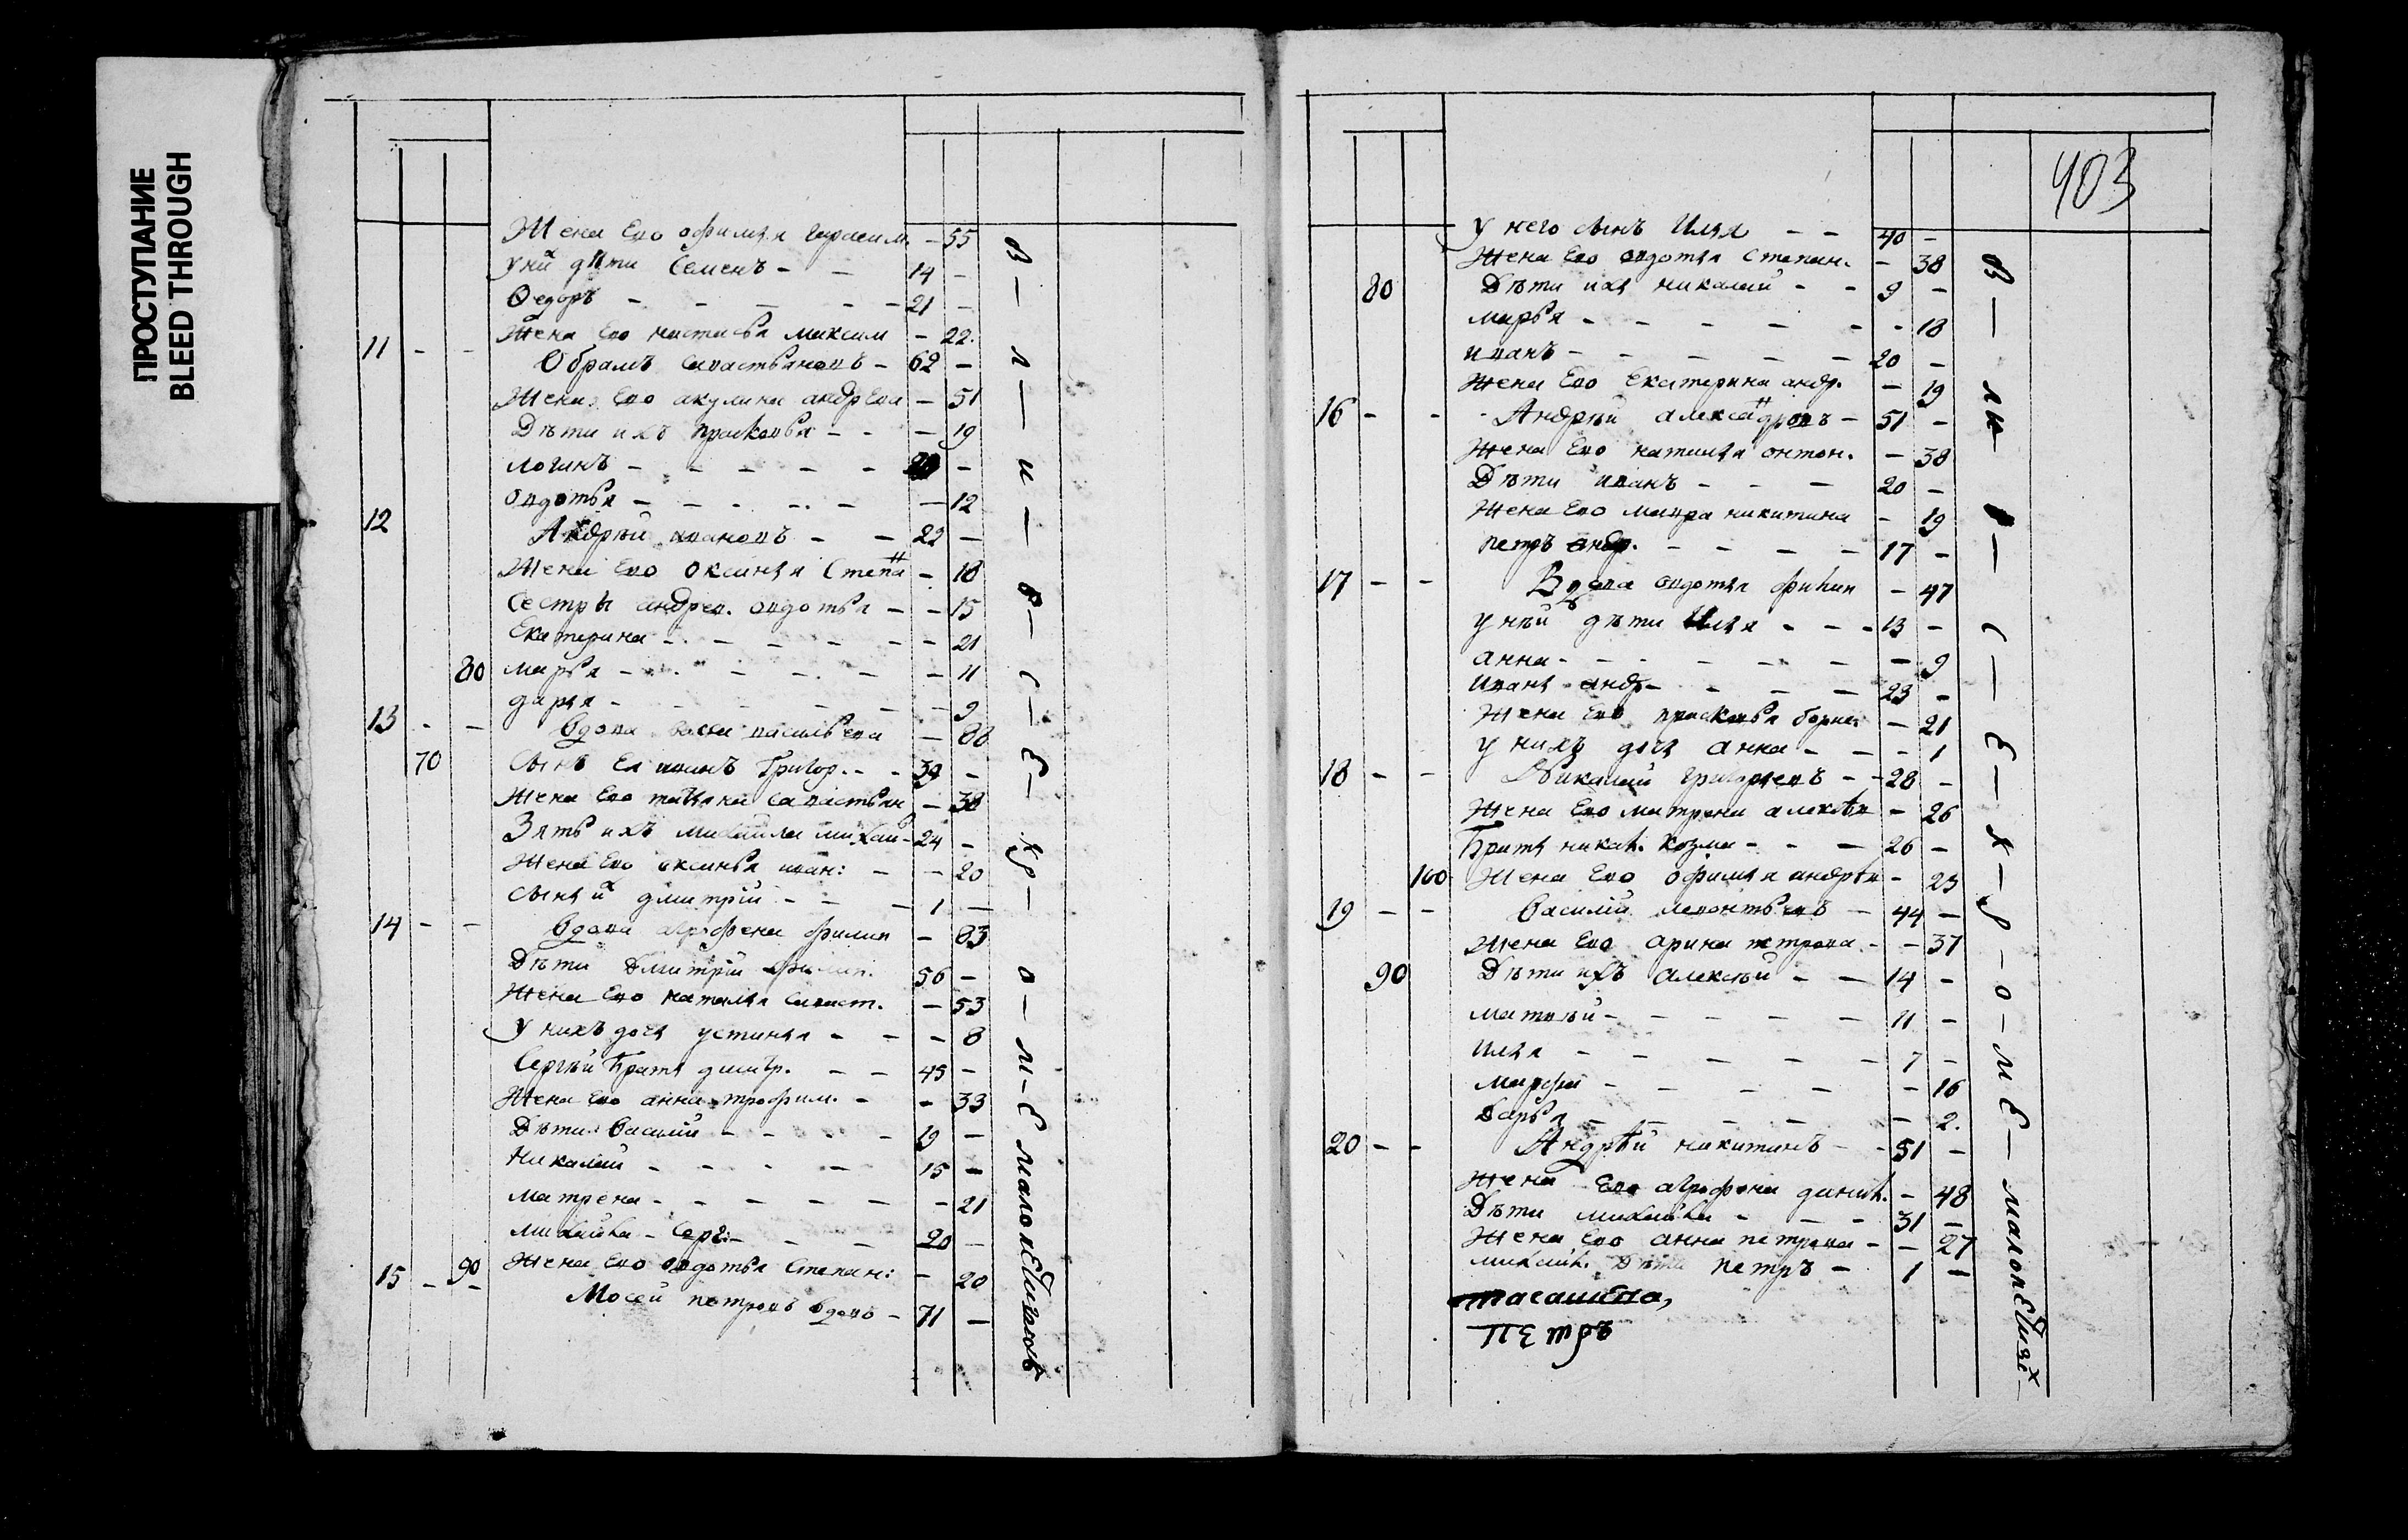 ПРОСТУПАНИЕ
BLEED THROUGH
Жена Ево офимья герасим. - 55
У них дѣти Семенъ - - 14 -
Ѳедоръ - - - - - 21 -
Жена Ево настасья максим - 22.
11 - - Обрамъ савастьяновъ - 62 -
Жена Ево акулина андрева - 51
Дѣти ихъ прасковья - - - 19
логинъ - - - - - -
овдотья - - - - - - 12
12 Андрѣй ивановъ - - 22 -
Жена Ево оксинья Степан - 18
Сестры андрея. овдотья - - 15
Екатерина - - - - - - 21
80 марья - - - - - - 11
дарья - - - - - - 9
13 - - вдова васильева - 88
70 Сынъ Ея иванъ Григор. - - 39 -
Жена Ево татьяна савастьян - 38
Зять ихъ михайла михай - 24 -
Жена Ево оксинья иван: - - 20
сынъ их дмитрій - - - 1 -
14 - - вдова агрофена филип - 83
Дѣти Дмитрій филип. 56 -
Жена Ево наталья савост. - 53
У нихъ дочь устинья - - - 8
Сергѣй братъ дмитр. - - 45 -
Жена Ево анна трофим. - - 33
Дѣти Василий - - - - 19 -
Николай - - - - 15 -
матрена - - - - - - 21
михайла - Серг: - - - 20 -
90 Жена Ево овдотья Степан: - 20
15 - - Мосей петровъ вдовъ - 71 -
В — л — и — в — с — Е — хр — о — м — Е малолЕтниховъ
403
У него сынъ Илья - - 40 -
Жена Ево овдотья Степан. - 38
80 Дѣти ихъ николай - - 9 -
марья - - - - - - 18
иванъ - - - - - 20 -
Жена Ево Екатерина андр. - 19
16 - - Андрѣй александровъ - 51 -
Жена Ево наталья онтон. - 38
Дѣти иванъ - - - 20 -
Жена Ево мавра никитина - 19
петръ андр. - - - - 17 -
17 - - Вдова овдотья филип - 47
У нѣй дѣти Илья - - - 13 -
анна - - - - - - 9
Иванъ андр - - - - 23 -
Жена Ево прасковья - 21
У нихъ дочь анна - - - 1
18 - - Николай григорьевъ - - 28 -
Жена Ево матрена алексѣв - 26
Братъ никол. козма - - - 26 -
100 Жена Ево офимья андрѣв - 25
19 - - Василий леонтьевъ - 44 -
Жена Ево арина петрова - - 37
90 Дѣти ихъ алексѣй - - 14 -
матвѣй - - - - - 11 -
илья - - - - - 7 -
марфа - - - - - - 16
Дарья - - - - - 2.
20 - - Андрѣй никитинъ - - 51 -
Жена Ево агрофена данил. - 48
Дѣти михайла - - - 31 -
Жена Ево анна петрова - - 27
михайл. Дѣти петръ - 1 -
Петръ